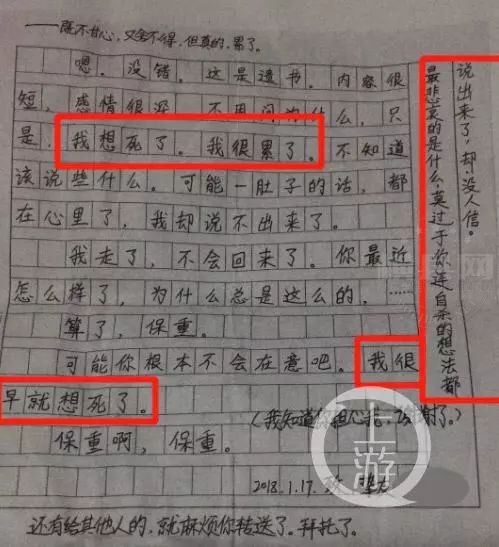 ——既不甘心，又舍不得，但真的，累了。
嗯。没错。这是遗书。内容很
短，感情很深，不要问为什么，只
是，我想死了。我很累了。不知道
该说些什么。可能一肚子的话，都
在心里了，我却说不出来了。
我走了，不会回来了。你最近
怎么样了，为什么总是这么的，……
算了，保重。
可能你根本不会在意吧。我很
早就想死了。
（我知道你担心我，谢谢了。）
保重啊，保重。
2018.1.17.
还有给其他人的，就麻烦你转送了。拜托了。
最悲哀的是什么，莫过于你连自杀的想法都
说出来了，却没人信。
上游